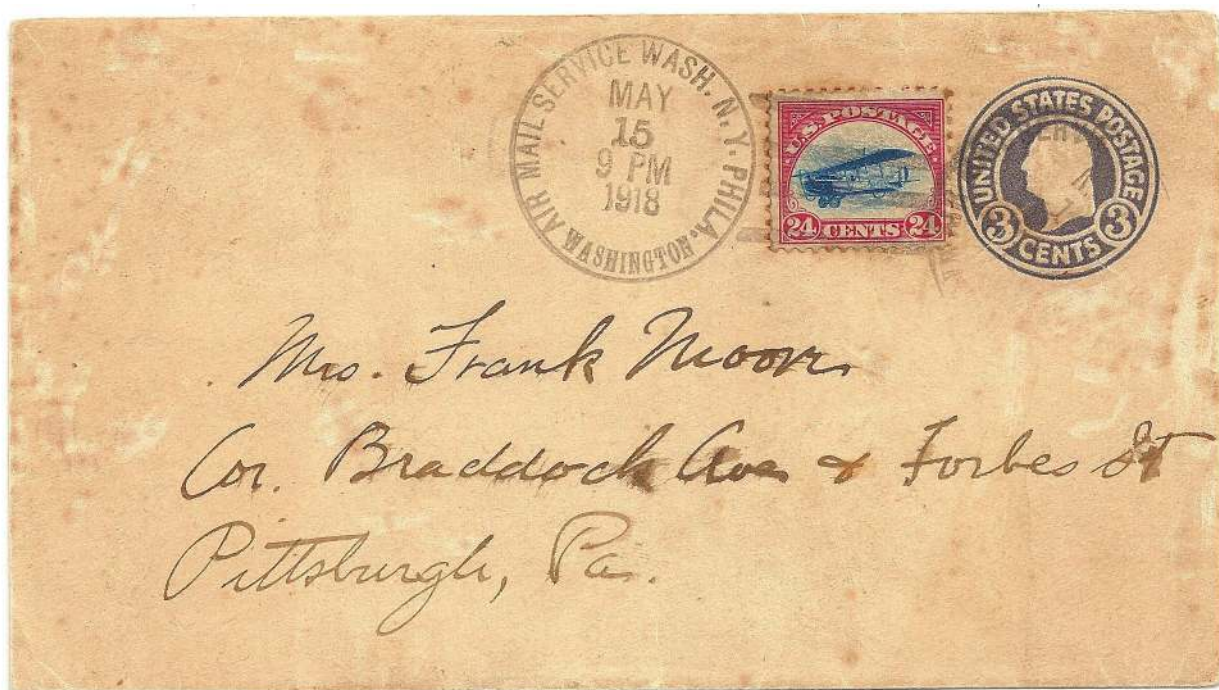 AIR MAIL SERVICE WASH. N.Y. PHILA. WASHINGTON
MAY
15
9 PM
1918
U.S. POSTAGE
24 CENTS 24
UNITED STATES POSTAGE
3 CENTS 3
Mrs. Frank Moore
Cor. Braddock Ave & Forbes St
Pittsburgh, Pa.